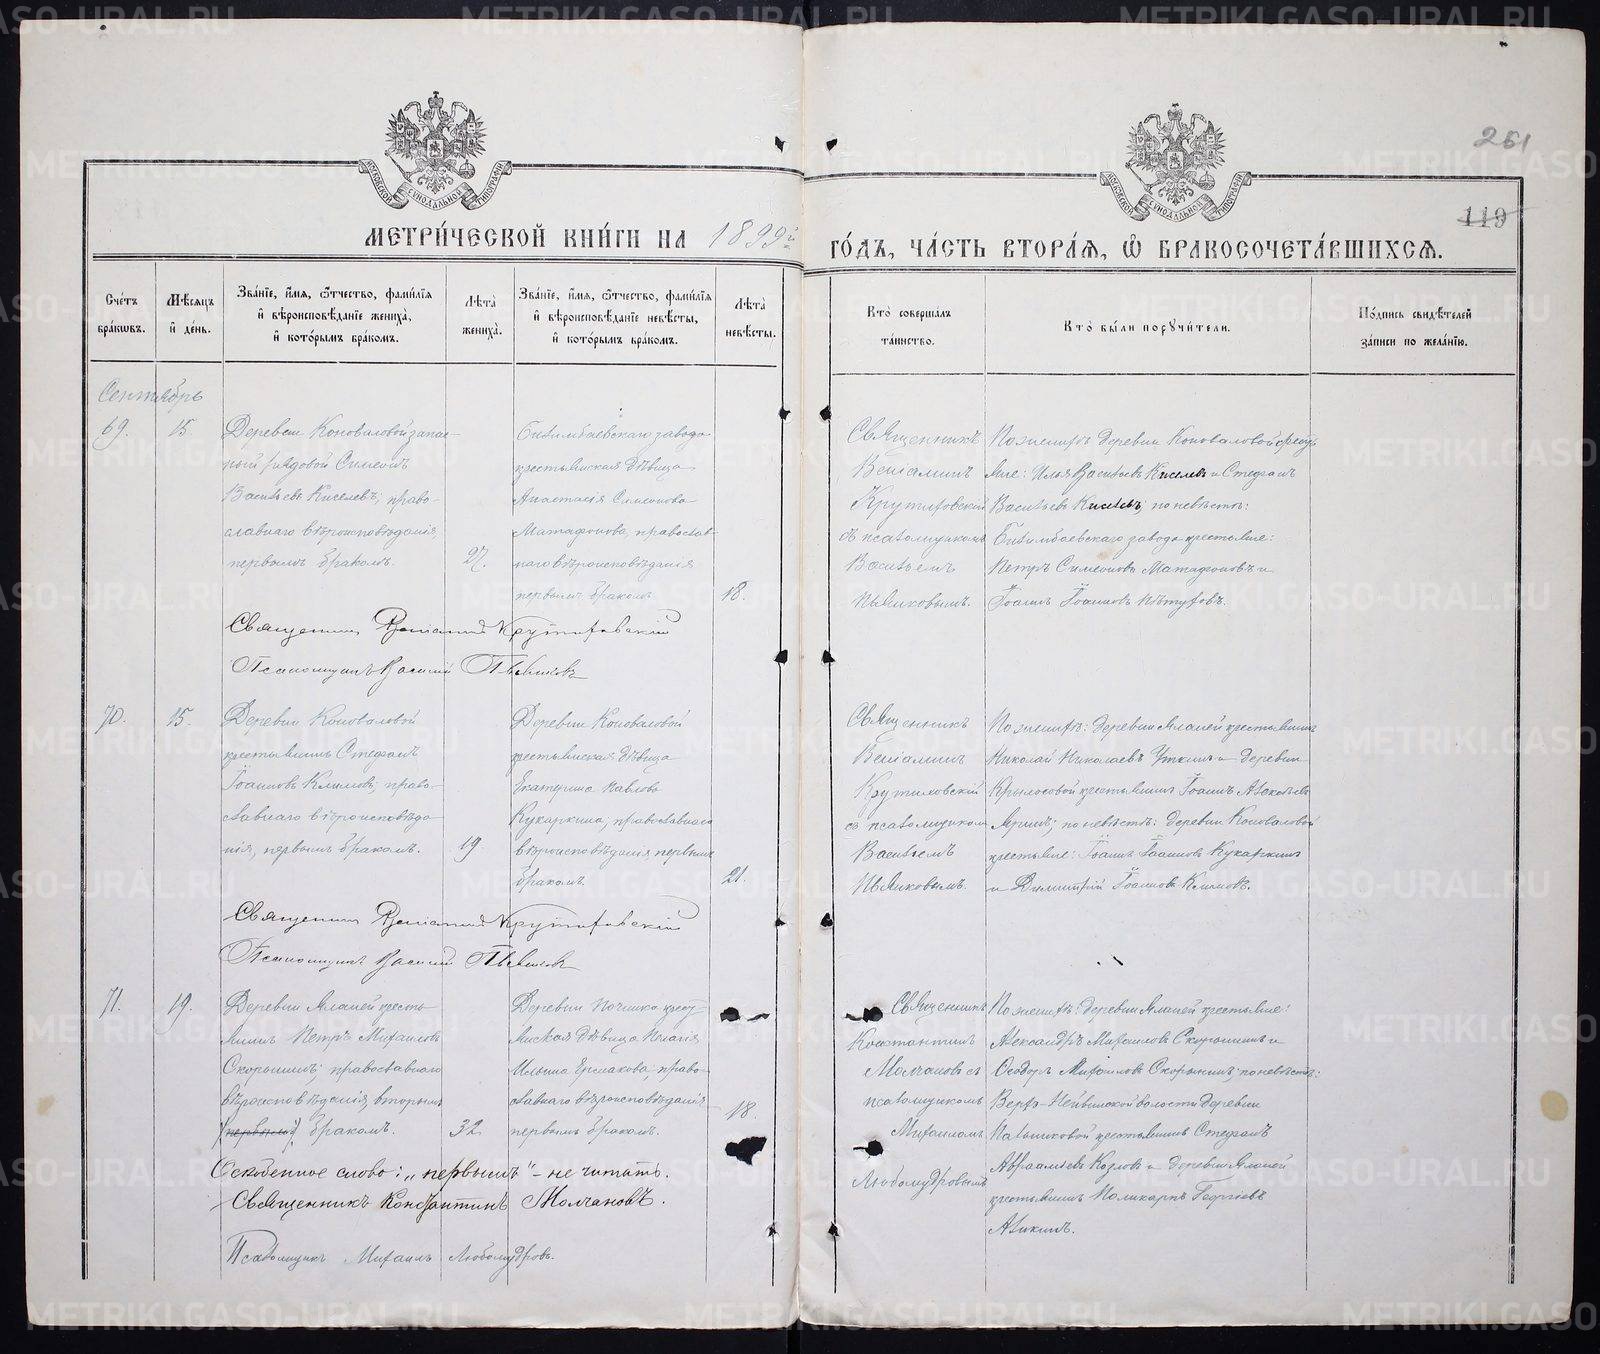 251
119
МОСКОВСКОЙ СѴНОДАЛЬНОЙ ТИПОГРАФІИ
МОСКОВСКОЙ СѴНОДАЛЬНОЙ ТИПОГРАФІИ
МЕТРИ́ЧЕСКОЙ КНИ́ГИ НА 1899й ГО́ДЪ, ЧА́СТЬ ВТОРА́Я, Ѿ БРАКОСОЧЕТА́ВШИХСЯ.
Сче́тъ бра́кωвъ.
Мѣ́сяцъ и҆ де́нь.
Зва́нїе, и҆́мя, ѻ҆́тчество, фамилїя и҆ вѣроисповѣ́данїе жениха̀, и҆ кото́рымъ бра́комъ.
Лѣ́та жениха̀.
Зва́нїе, и҆́мя, ѻ҆́тчество, фамилїя и҆ вѣроисповѣ́данїе невѣ́сты, и҆ кото́рымъ бра́комъ.
Лѣ́та невѣ́сты.
Кто̀ соверша́лъ та́инство.
Кто̀ бы́ли порꙋчи́тели.
По́дпись свидѣ́телей за́писи по жела́нїю.
Сентябрь
69.
15.
Деревни Коноваловой запас-
ный рядовой Симеонъ
Васильевъ Киселевъ, право-
славнаго вѣроисповѣданія,
первымъ бракомъ.
27.
Билимбаевскаго завода
крестьянская дѣвица
Анастасія Симеонова
Матафонова, православ-
наго вѣроисповѣданія
первымъ бракомъ.
18.
Священникъ
Веніаминъ
Крутиховскій
съ псаломщикомъ
Васильемъ
Пьянковымъ.
По женихѣ деревни Коноваловой кресть
яне: Илья Васильевъ Киселевъ и Стефанъ
Васильевъ Киселевъ; по невѣстѣ:
Билимбаевскаго завода крестьяне:
Петръ Симеоновъ Матафоновъ и
Іоаннъ Іоанновъ Пѣтуховъ.
Священникъ Веніаминъ Крутиховскій
Псаломщикъ Василій Пьянковъ
70.
15.
Деревни Коноваловой
крестьянинъ Стефанъ
Іоанновъ Климовъ, право-
славнаго вѣроисповѣда
нія, первымъ бракомъ.
19
Деревни Коноваловой
крестьянская дѣвица
Екатерина Павлова
Кукаркина, православнаго
вѣроисповѣданія, первымъ
бракомъ.
21.
Священникъ
Веніаминъ
Крутиховскій
съ псаломщикомъ
Васильемъ
Пьянковымъ.
По женихѣ: деревни Яланей крестьянинъ
Николай Николаевъ Уткинъ и деревни
Крылосовой крестьянинъ Іоаннъ Алексѣевъ
; по невѣстѣ: деревни Коноваловой
крестьяне: Іоаннъ Іоанновъ Кукаркинъ
и Димитрій Іоанновъ Климовъ.
Священникъ Веніаминъ Крутиховскій
Псаломщикъ Василій Пьянковъ
71.
19.
Деревни Яланей кресть
янинъ Петръ Михаиловъ
Скорынинъ, православнаго
вѣроисповѣданія, вторымъ
(первымъ) бракомъ.
32
Деревни Починка крест
янская дѣвица Пелагія
Ильина Ермакова, право-
славнаго вѣроисповѣданія
первымъ бракомъ.
18.
Священникъ
Константинъ
Молчановъ съ
псаломщикомъ
Михаиломъ
Любомудровымъ
По женихѣ: деревни Яланей крестьяне:
Александръ Михаиловъ Скорынинъ и
Ѳеодоръ Михаиловъ Скорынинъ; по невѣстѣ:
Верхъ-Нейвинской волости деревни
Пальниковой крестьянинъ Стефанъ
Авраамьевъ Козловъ и деревни Яланей
крестьянинъ Поликарпъ Георгіевъ
Аликинъ.
Оскобенное слово: „первымъ" – не читать.
Священникъ Константинъ Молчановъ.
Псаломщикъ Михаилъ Любомудровъ.
METRIKI.GASO-URAL.RU